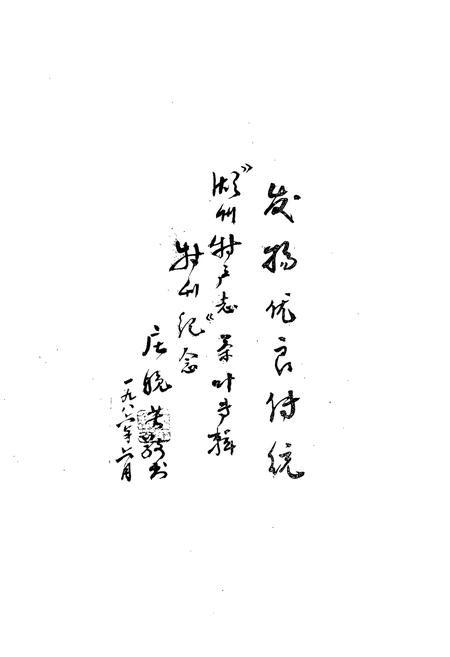 发扬优良传统
《湖州特产志》茶叶专辑
特刊纪念
庄晚芳 书
一九八六年六月